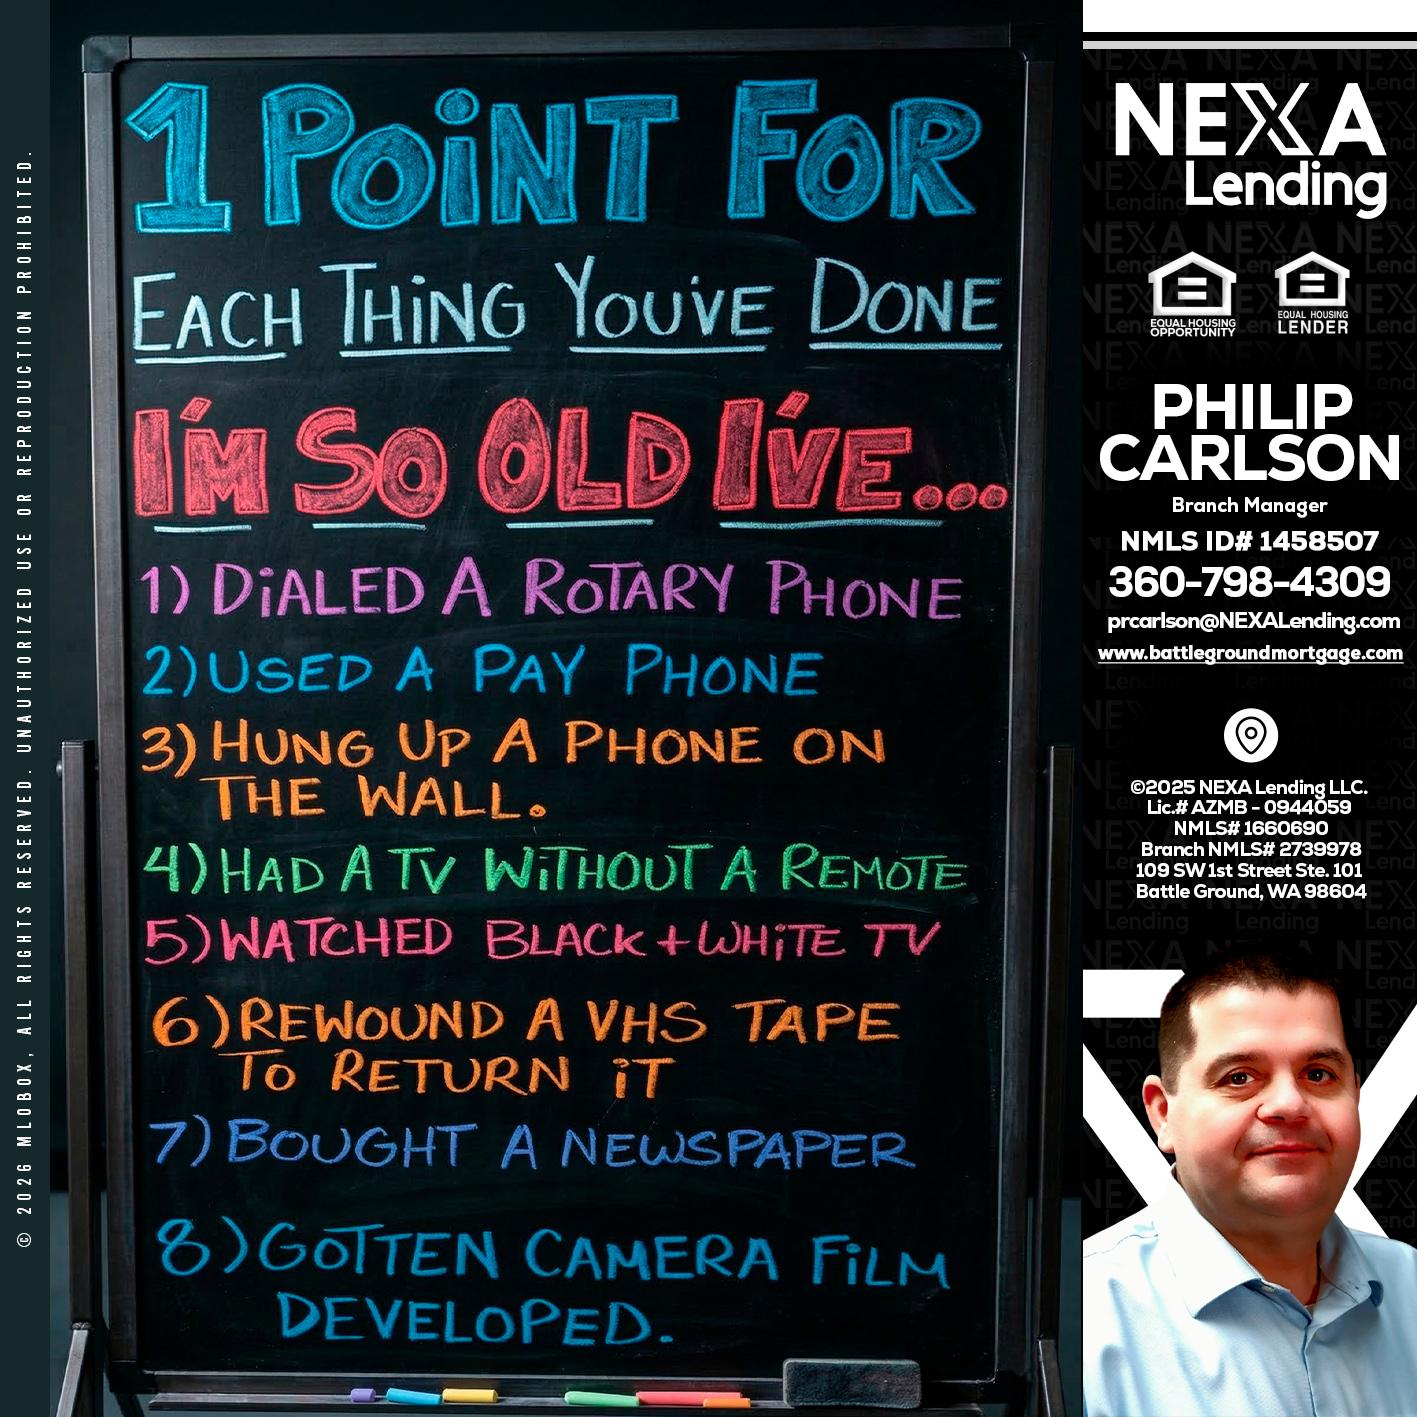 1 POINT FOR
EACH THING YOU'VE DONE
I'M SO OLD I'VE...
1) DIALED A ROTARY PHONE
2) USED A PAY PHONE
3) HUNG UP A PHONE ON
THE WALL.
4) HAD A TV WITHOUT A REMOTE
5) WATCHED BLACK + WHITE TV
6) REWOUND A VHS TAPE
TO RETURN IT
7) BOUGHT A NEWSPAPER
8) GOTTEN CAMERA FILM
DEVELOPED.
NEXA
Lending
EQUAL HOUSING
OPPORTUNITY
EQUAL HOUSING
LENDER
PHILIP
CARLSON
Branch Manager
NMLS ID# 1458507
360-798-4309
prcarlson@NEXALending.com
www.battlegroundmortgage.com
©2025 NEXA Lending LLC.
Lic.# AZMB - 0944059
NMLS# 1660690
Branch NMLS# 2739978
109 SW 1st Street Ste. 101
Battle Ground, WA 98604
© 2026 MLOBOX, ALL RIGHTS RESERVED. UNAUTHORIZED USE OR REPRODUCTION PROHIBITED.